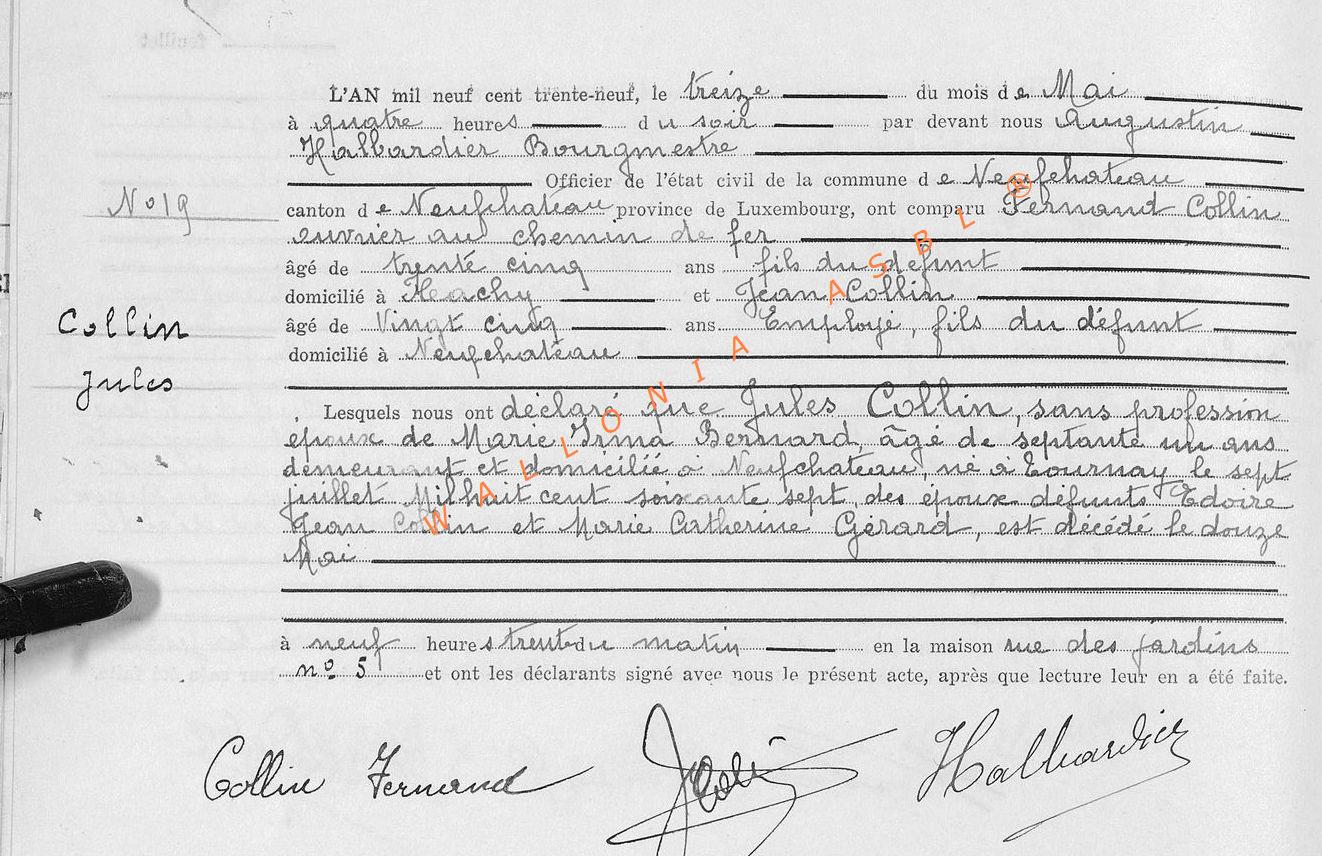 L'AN mil neuf cent trente-neuf, le treize du mois de Mai
à quatre heures du soir par devant nous Augustin
Halbardier Bourgmestre
Officier de l'état civil de la commune de Neufchateau
No 19
canton de Neufchateau province de Luxembourg, ont comparu Fernand Collin
ouvrier au chemin de fer
âgé de trente cinq ans fils du défunt
domicilié à Heachy et Jean Collin
Collin
âgé de Vingt cinq ans Employé, fils du défunt
domicilié à Neufchateau
Jules
Lesquels nous ont déclaré que Jules Collin, sans profession
époux de Marie Irma Bernard, âgé de septante un ans
demeurant et domicilié à Neufchateau, né à Tournay le sept
juillet Mil huit cent soixante sept, des époux défunts Edoire
Jean Collin et Marie Catherine Gérard, est décédé le douze
Mai
à neuf heures trente du matin en la maison rue des jardins
no 5 et ont les déclarants signé avec nous le présent acte, après que lecture leur en a été faite.
Collin Fernand Halbardier
WALLONIA ASBL ®
feuillet